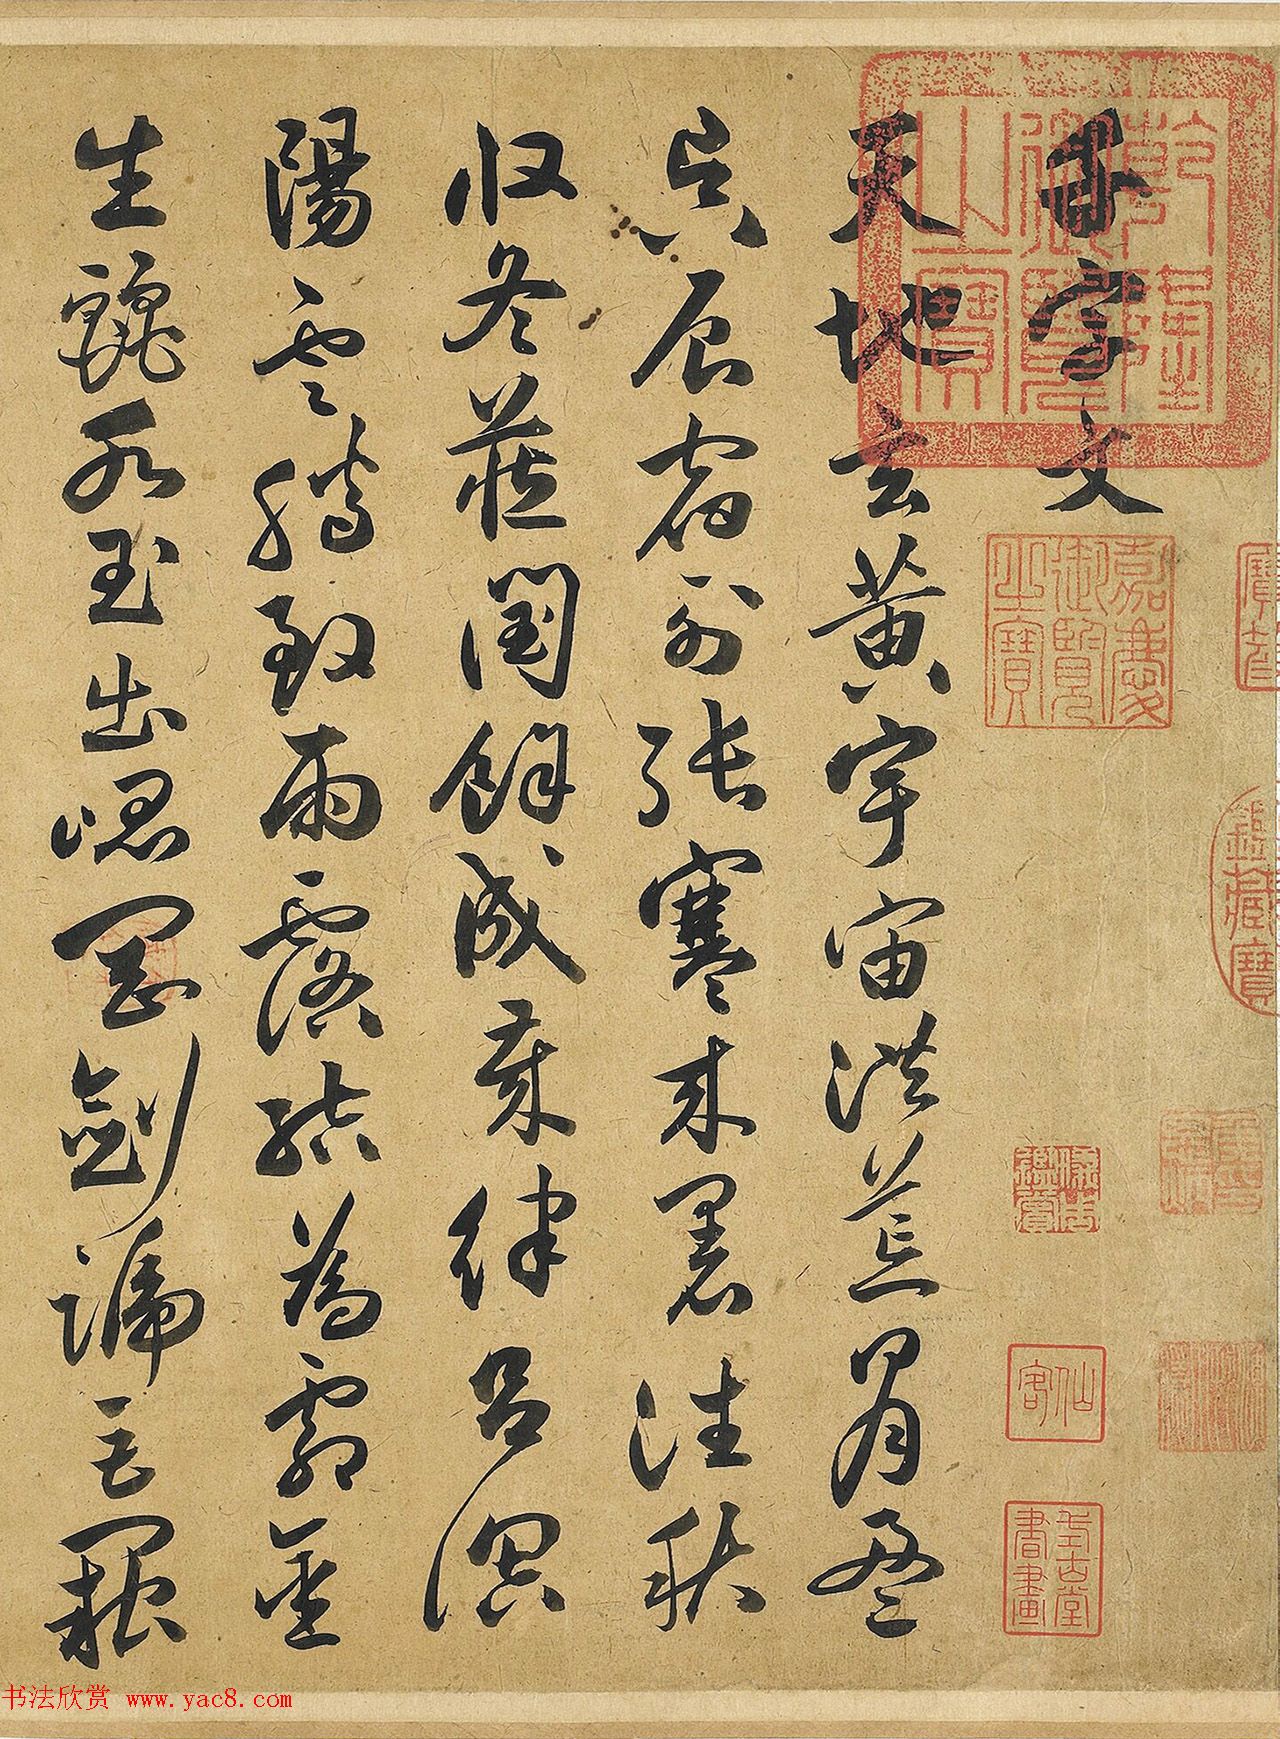 千字文
天地玄黃宇宙洪荒日月盈
昃辰宿列張寒來暑往秋
收冬藏閏餘成歲律呂調
陽雲騰致雨露結為霜金
生麗水玉出崐岡劍號巨闕
乾隆御覽之寶
嘉慶御覽之寶
鑑藏寶
仙客
式古堂書畫
书法欣赏 www.yac8.com